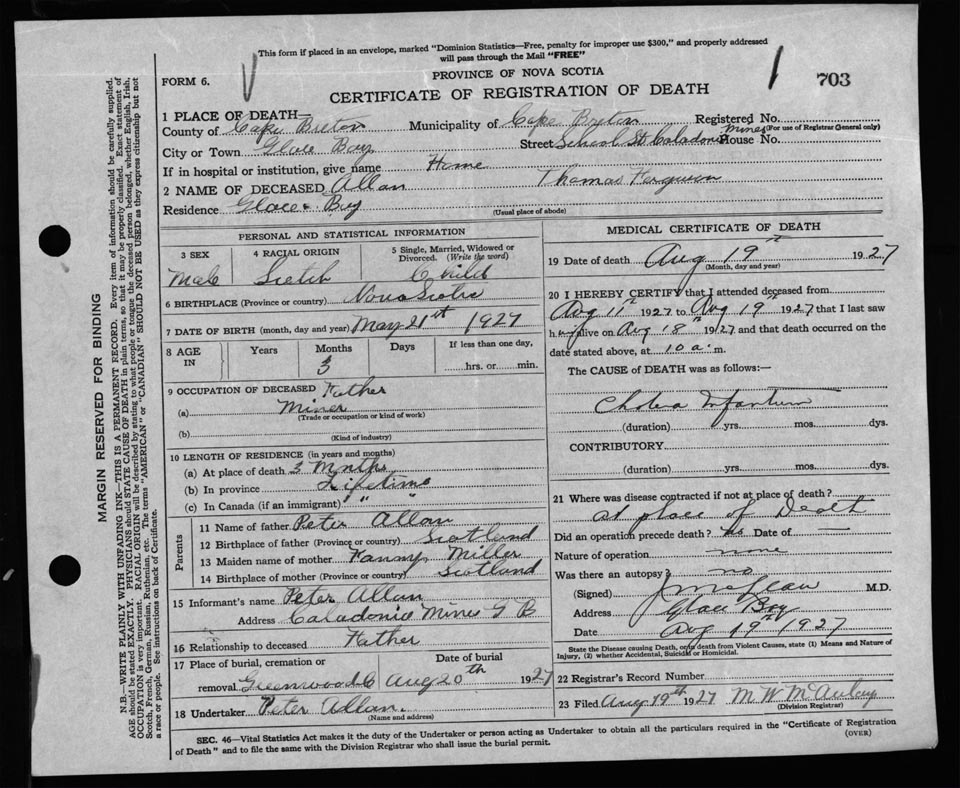 This form if placed in an envelope, marked "Dominion Statistics—Free, penalty for improper use $300," and properly addressed
will pass through the Mail "FREE"
FORM 6.
PROVINCE OF NOVA SCOTIA
703
CERTIFICATE OF REGISTRATION OF DEATH
1 PLACE OF DEATH—
County of Cape Breton Municipality of Cape Breton Registered No.
(For use of Registrar General only)
City or Town Glace Bay Street School St Caladonia Mines House No.
If in hospital or institution, give name Home
2 NAME OF DECEASED Allan Thomas Ferguson
Residence Glace Bay (Usual place of abode)
PERSONAL AND STATISTICAL INFORMATION
3 SEX Male
4 RACIAL ORIGIN Scotch
5 Single, Married, Widowed or Divorced. (Write the word) Child
6 BIRTHPLACE (Province or country) Nova Scotia
7 DATE OF BIRTH (month, day and year) May 21st 1927
8 AGE IN Years Months 3 Days If less than one day, hrs. or min.
9 OCCUPATION OF DECEASED Father
(a) Miner
(Trade or occupation or kind of work)
(b)
(Kind of industry)
10 LENGTH OF RESIDENCE (in years and months)
(a) At place of death 3 Months
(b) In province Lifetime
(c) In Canada (if an immigrant) " "
Parents
11 Name of father Peter Allan
12 Birthplace of father (Province or country) Scotland
13 Maiden name of mother Fanny Miller
14 Birthplace of mother (Province or country) Scotland
15 Informant's name Peter Allan
Address Caladonia Mines G B
16 Relationship to deceased Father
17 Place of burial, cremation or removal Greenwood C Date of burial Aug 20th 1927
18 Undertaker Peter Allan.
(Name and address)
MEDICAL CERTIFICATE OF DEATH
19 Date of death Aug 19th 1927
(Month, day and year)
20 I HEREBY CERTIFY that I attended deceased from
Aug 11th 1927 to Aug 19th 1927 that I last saw
him alive on Aug 18th 1927 and that death occurred on the
date stated above, at 10 a. m.
The CAUSE of DEATH was as follows:—
Cholera Infantum
(duration) yrs. mos. dys.
CONTRIBUTORY
(duration) yrs. mos. dys.
21 Where was disease contracted if not at place of death?
at place of Death
Did an operation precede death? No Date of
Nature of operation none
Was there an autopsy? no
(Signed) M.D.
Address Glace Bay
Date Aug 19th 1927
State the Disease causing Death, or in death from Violent Causes, state (1) Means and Nature of
Injury, (2) whether Accidental, Suicidal or Homicidal.
22 Registrar's Record Number
23 Filed Aug 19th 1927 M W McAulay
(Division Registrar)
SEC. 46—Vital Statistics Act makes it the duty of the Undertaker or person acting as Undertaker to obtain all the particulars required in the "Certificate of Registration
of Death" and to file the same with the Division Registrar who shall issue the burial permit.
(OVER)
MARGIN RESERVED FOR BINDING
N.B.—WRITE PLAINLY WITH UNFADING INK—THIS IS A PERMANENT RECORD. Every item of information should be carefully supplied.
AGE should be stated EXACTLY. PHYSICIANS should STATE CAUSE OF DEATH in plain terms, so that it may be properly classified. Exact statement of
OCCUPATION is very important. RACIAL ORIGIN will be described by stating to what people or tongue the deceased person belonged, whether English, Irish,
Scotch, French, German, Russian, Ruthenian, etc. The terms "AMERICAN" or "CANADIAN" SHOULD NOT BE USED as they express citizenship but not
a race or people. See instructions on back of Certificate.